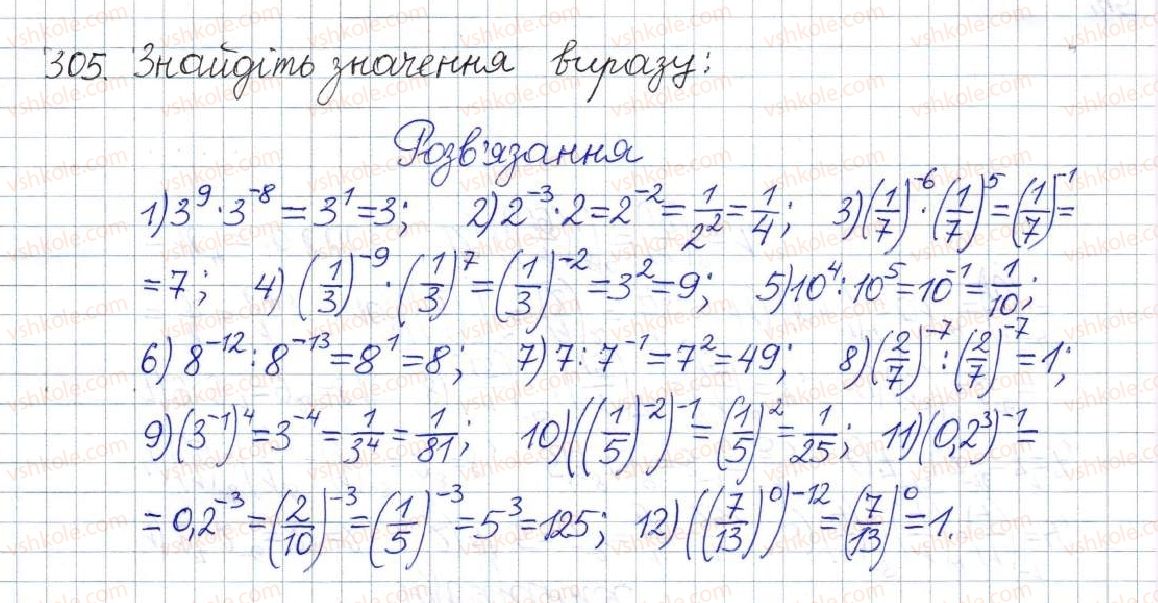 305. Знайдіть значення виразу:
Розв'язання
1) 3⁹ · 3⁻⁸ = 3¹ = 3; 2) 2⁻³ · 2 = 2⁻² = 1/2² = 1/4; 3) (1/7)⁻⁶ · (1/7)⁵ = (1/7)⁻¹ =
= 7; 4) (1/3)⁻⁹ · (1/3)⁷ = (1/3)⁻² = 3² = 9; 5) 10⁴ : 10⁵ = 10⁻¹ = 1/10;
6) 8⁻¹² : 8⁻¹³ = 8¹ = 8; 7) 7 : 7⁻¹ = 7² = 49; 8) (2/7)⁻⁷ : (2/7)⁻⁷ = 1;
9) (3⁻¹)⁴ = 3⁻⁴ = 1/3⁴ = 1/81; 10) ((1/5)⁻²)⁻¹ = (1/5)² = 1/25; 11) (0,2³)⁻¹ =
= 0,2⁻³ = (2/10)⁻³ = (1/5)⁻³ = 5³ = 125; 12) ((7/13)⁰)⁻¹² = (7/13)⁰ = 1.